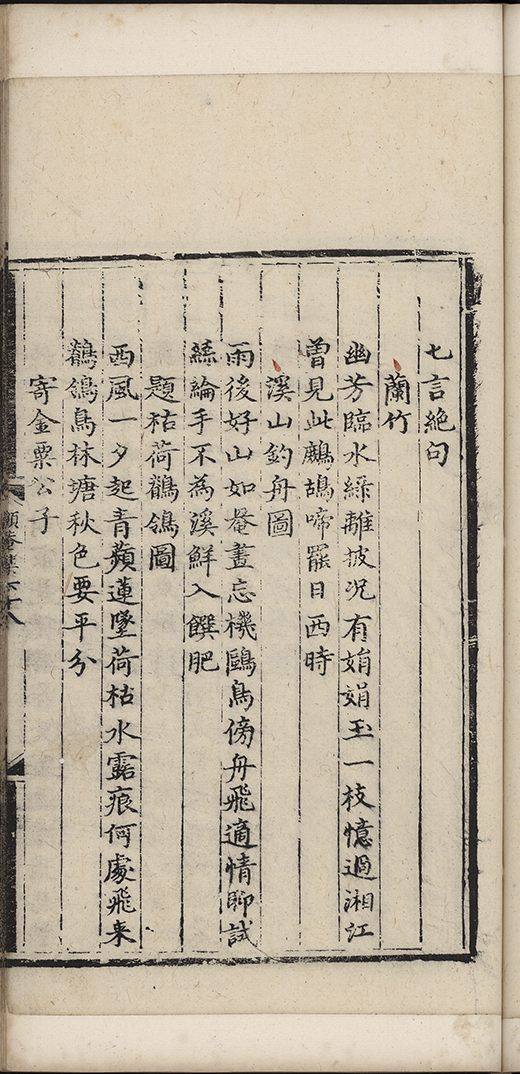 七言絶句
蘭竹
幽芳臨水綠離披况有娟娟玉一枝憶過湘江
曽見此鷓鴣啼罷日西時
溪山釣舟圖
雨後好山如罨畫忘機鷗鳥傍舟飛適情聊試
絲綸手不為溪鮮入饌肥
題枯荷鶺鴒圖
西風一夕起青蘋蓮墜荷枯水露痕何處飛来
鶺鴒鳥林塘秋色要平分
寄金粟公子
頤菴集六十八